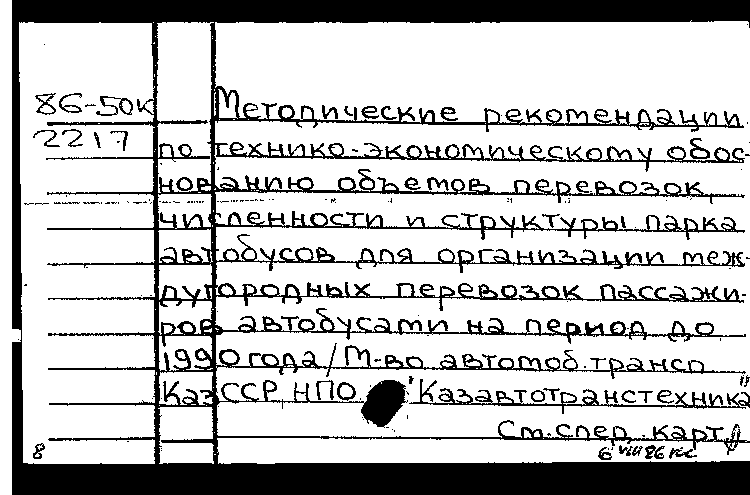 86-50к Методические рекомендации
2217
по технико-экономическому обос-
нованию объемов перевозок,
численности и структуры парка
автобусов для организации меж-
дугородных перевозок пассажи-
ров автобусами на период до
1990 года/М-во автомоб. трансп
КазССР НПО "Казавтотранстехника"
См. след. карт.
8
6 VIII 86